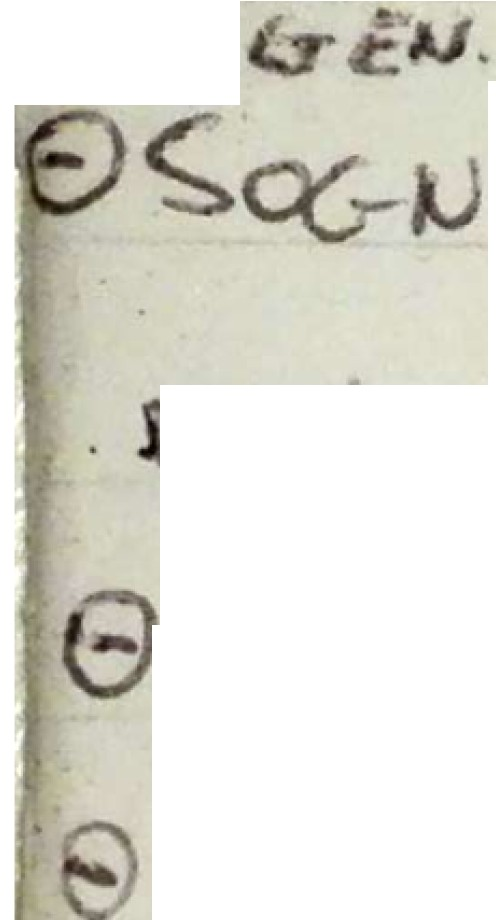 GEN.
⊖ SOGN
⊖
⊖